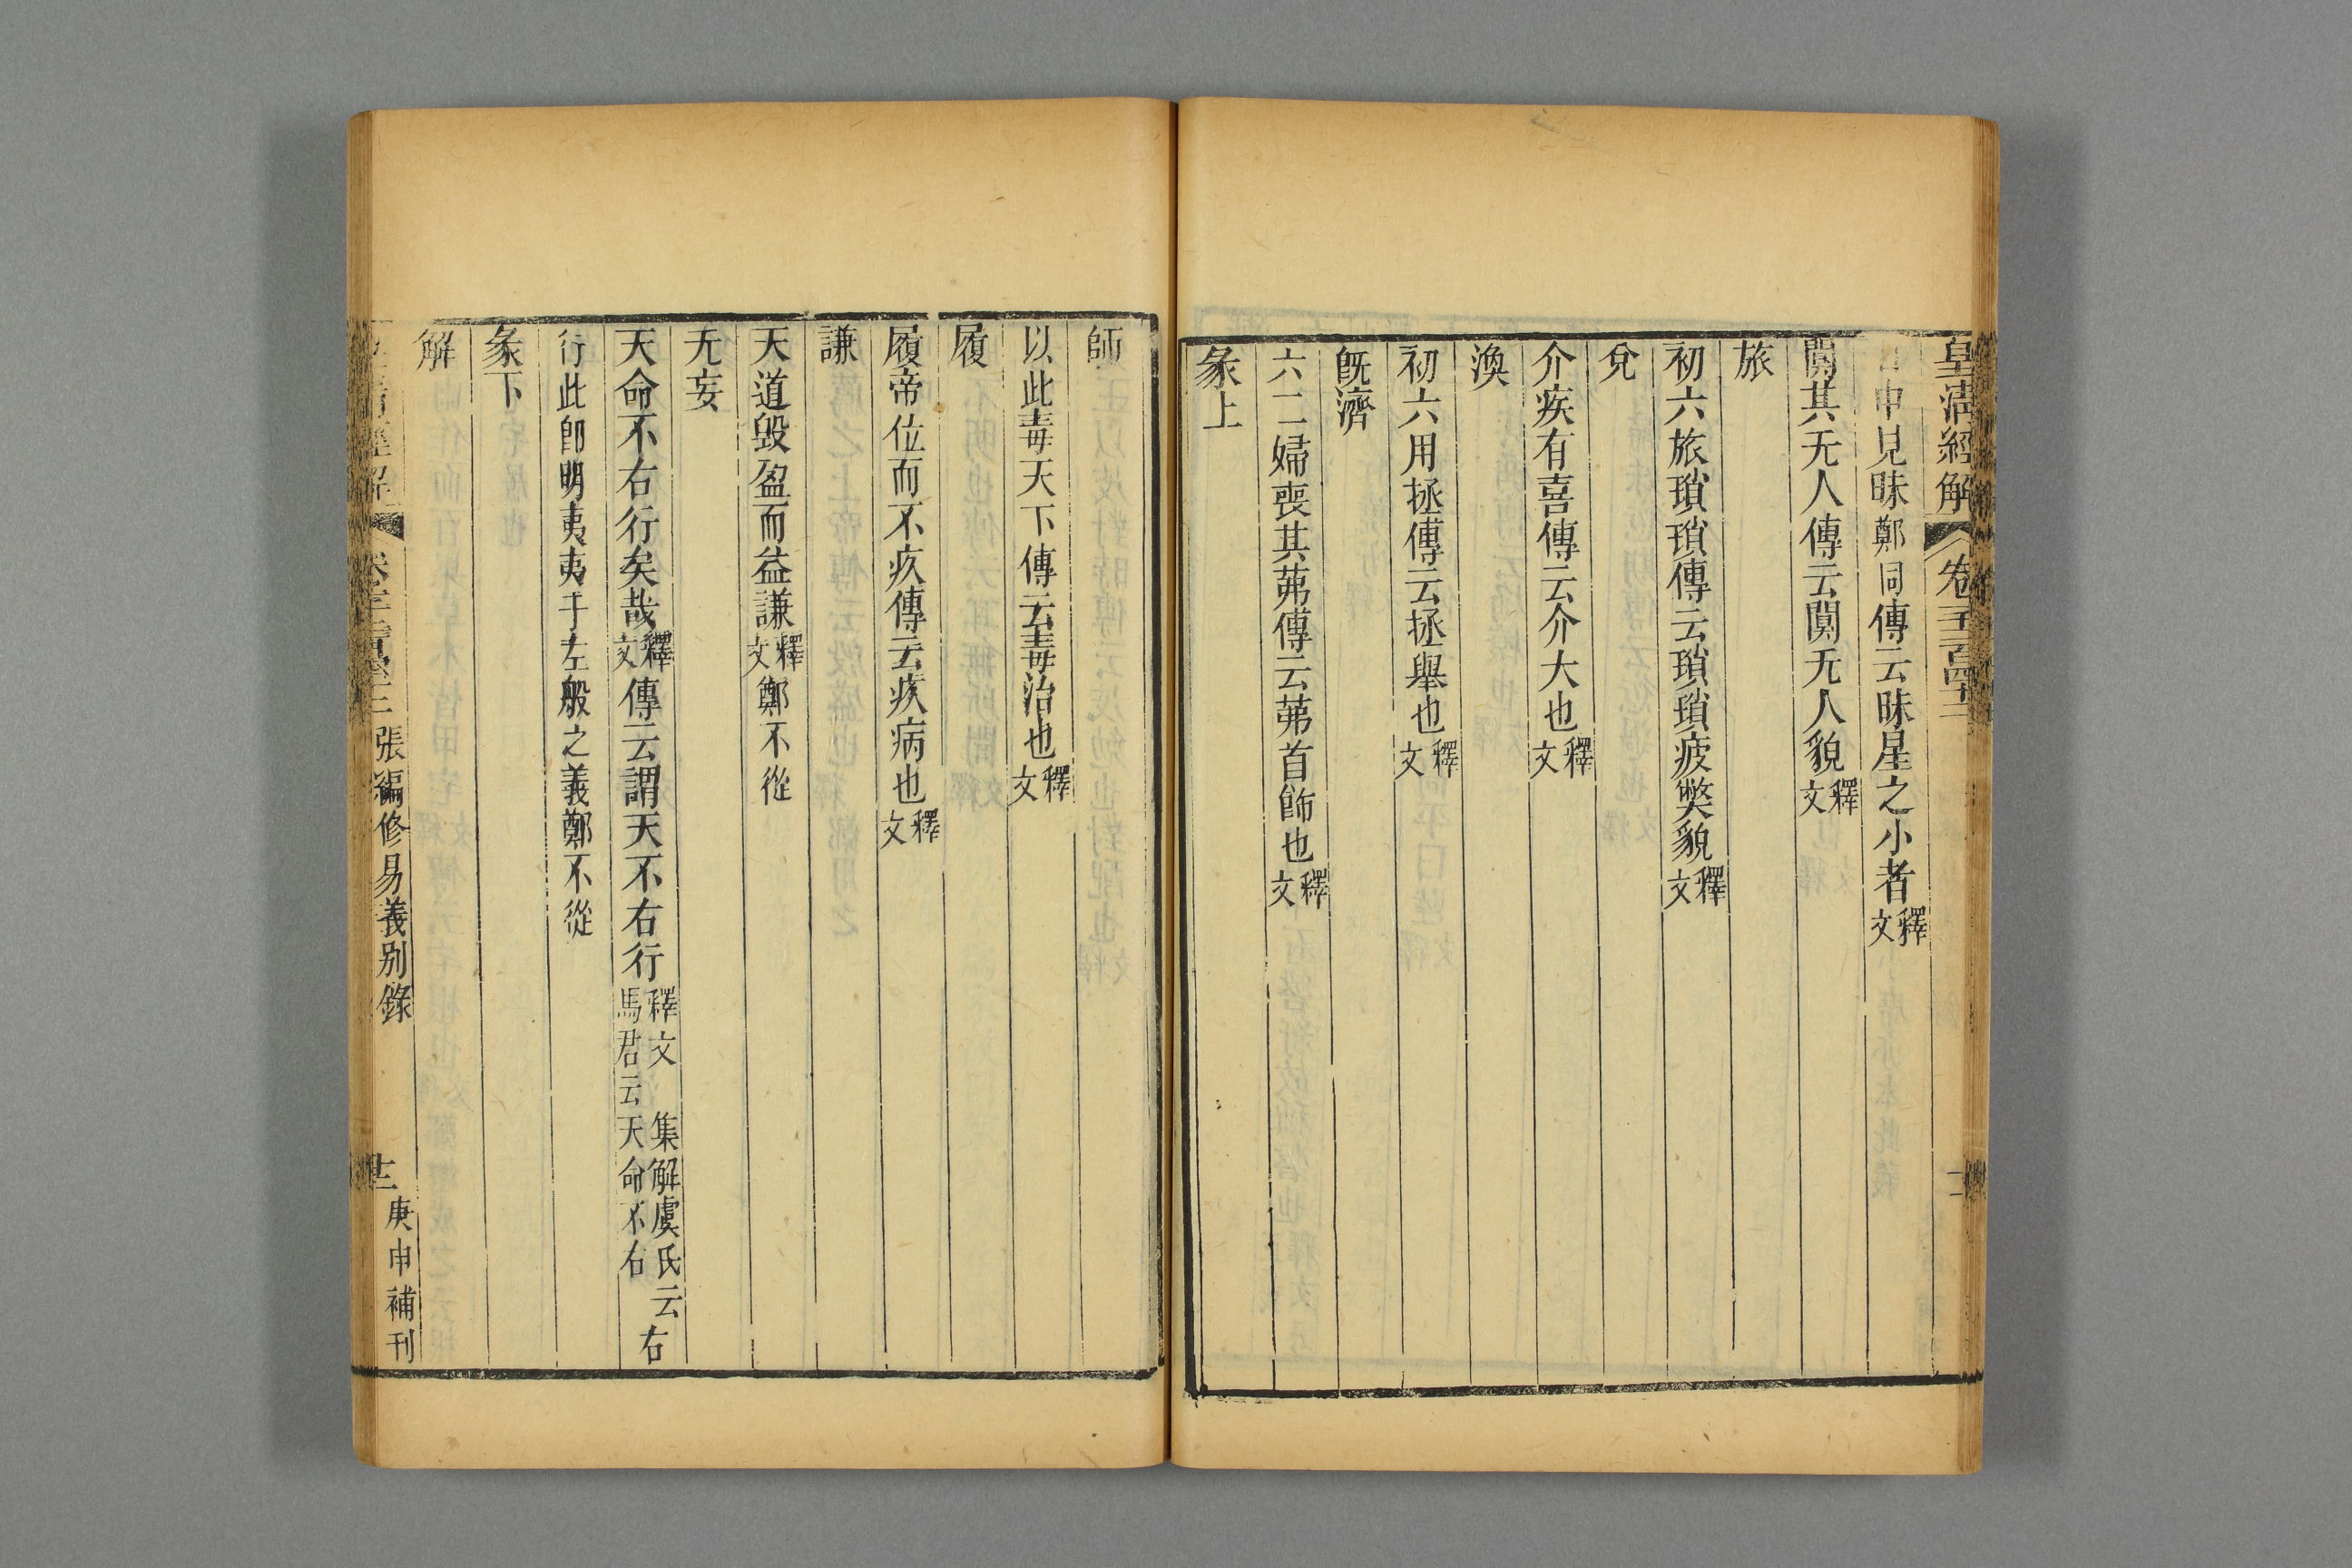 皇清經解 卷千二百四十二 十二
中見昧鄭同傳云昧星之小者釋文
闃其无人傳云闃无人貌釋文
旅
初六旅瑣瑣傳云瑣瑣疲獘貌釋文
兌
介疾有喜傳云介大也釋文
渙
初六用拯傳云拯舉也釋文
旣濟
六二婦喪其茀傳云茀首飾也釋文
彖上
師
以此毒天下傳云毒治也釋文
履
履帝位而不疚傳云疚病也釋文
謙
天道毁盈而益謙釋文鄭不從
无妄
天命不右行矣哉釋文傳云謂天不右行釋文 集解虞氏云右馬君云天命不右
行此卽明夷夷于左般之義鄭不從
彖下
解
張編修易義別錄 庚申補刊